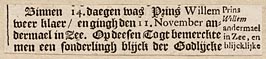 Binnen 14. daegen was Prins Willem
weer klaer/ en gingh den 11. November an-
dermael in Zee. Op desen Togt bemerckte
men een sonderlingh blijck der Godlijcke
Prins
Willem
andermael
in Zee, en
blijcklijke